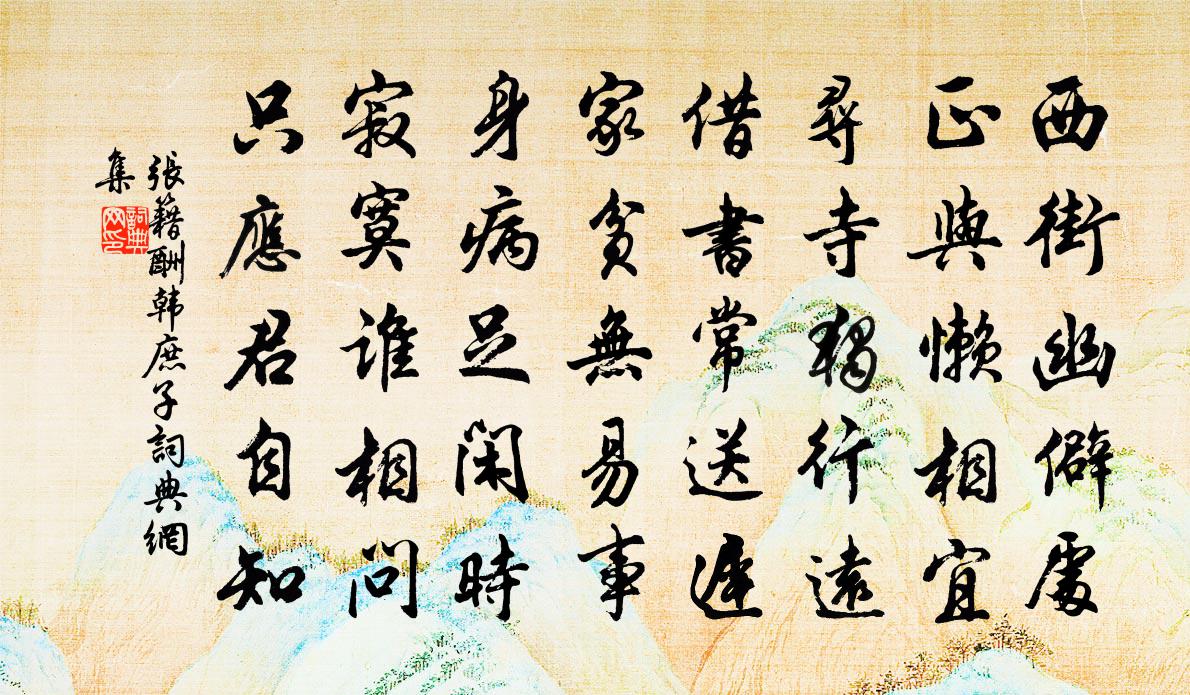 西街幽僻處
正與懶相宜
尋寺獨行遠
借書常送遲
家貧無易事
身病足閑時
寂寞誰相問
只應君自知
張籍酬韩庶子詞典網
集
詞典
网印